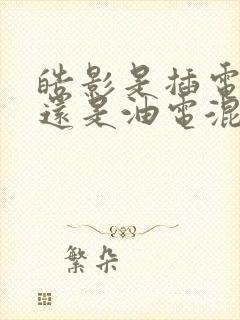 皓影是插電
還是油電混
繁朵